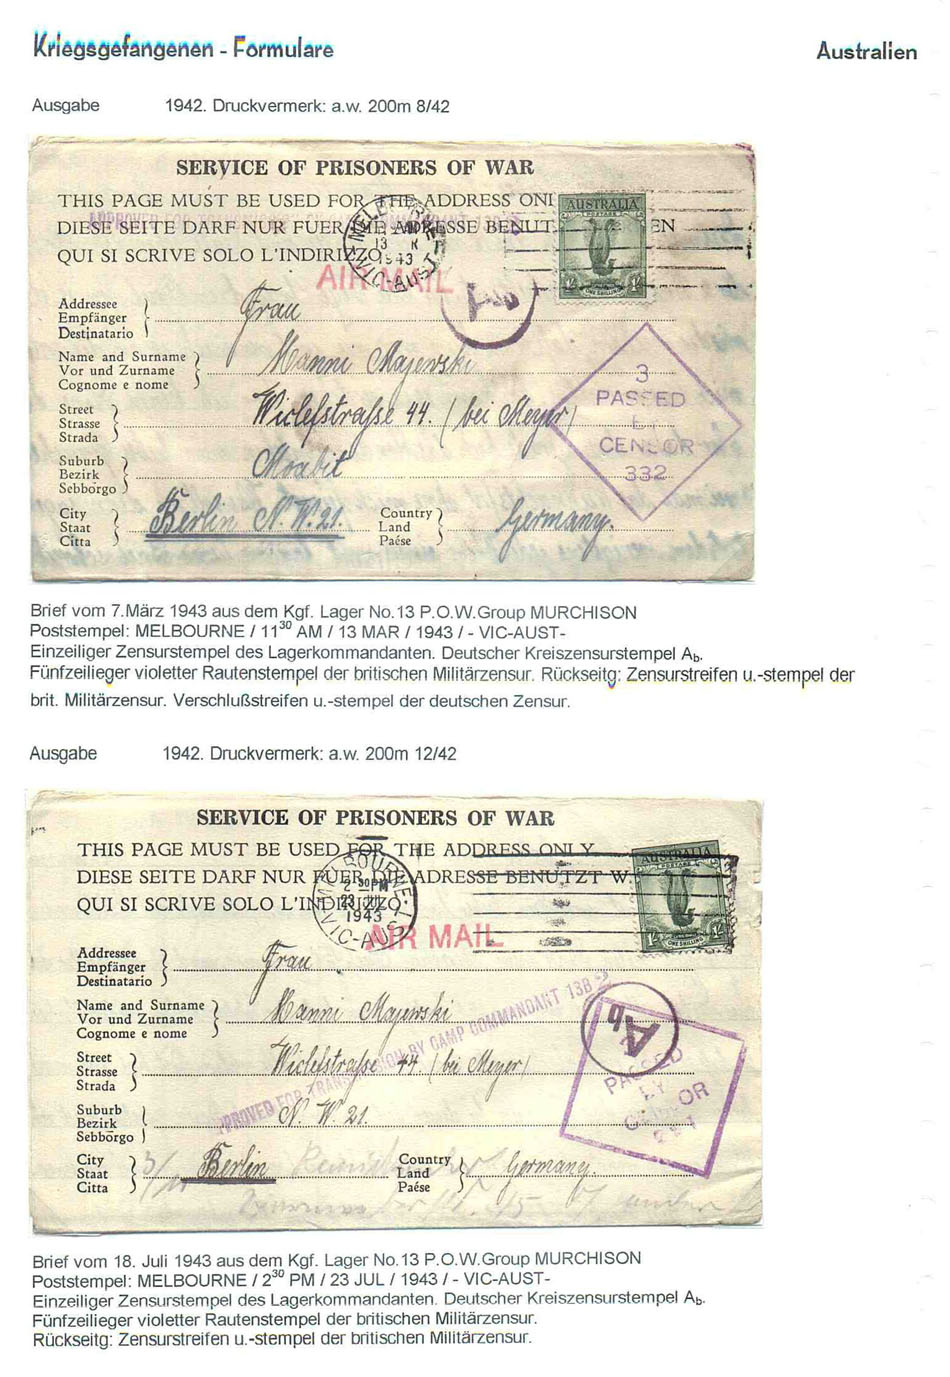 Kriegsgefangenen - Formulare Australien
Ausgabe 1942. Druckvermerk: a.w. 200m 8/42
SERVICE OF PRISONERS OF WAR
THIS PAGE MUST BE USED FOR THE ADDRESS ONL
DIESE SEITE DARF NUR FUER DIE ADRESSE BENUT EN
QUI SI SCRIVE SOLO L'INDIRIZZO
AUSTRALIA
POSTAGE
1/- ONE SHILLING 1/-
MELB
13 MAR
1943
VIC-AUST
AIR MAIL
Ab
Addressee
Empfänger
Destinatario
Frau
Name and Surname
Vor und Zurname
Cognome e nome
Hanni Majewski
Street
Strasse
Strada
Wiclefstraße 44. (bei Meyer)
Suburb
Bezirk
Sebborgo
Moabit
City
Staat
Citta
Berlin N.W.21.
Country
Land
Paése
Germany.
3
PASSED
BY
CENSOR
332
Brief vom 7.März 1943 aus dem Kgf. Lager No.13 P.O.W.Group MURCHISON
Poststempel: MELBOURNE / 11³⁰ AM / 13 MAR / 1943 / - VIC-AUST-
Einzeiliger Zensurstempel des Lagerkommandanten. Deutscher Kreiszensurstempel Ab.
Fünfzeilieger violetter Rautenstempel der britischen Militärzensur. Rückseitg: Zensurstreifen u.-stempel der
brit. Militärzensur. Verschlußstreifen u.-stempel der deutschen Zensur.
Ausgabe 1942. Druckvermerk: a.w. 200m 12/42
SERVICE OF PRISONERS OF WAR
THIS PAGE MUST BE USED FOR THE ADDRESS ONLY
DIESE SEITE DARF NUR FUER DIE ADRESSE BENUTZT W
QUI SI SCRIVE SOLO L'INDIRIZZO
AUSTRALIA
1/- ONE SHILLING 1/-
MELBOURNE
2 30 PM
23 JUL
1943
VIC-AUST
AIR MAIL
Addressee
Empfänger
Destinatario
Frau
Name and Surname
Vor und Zurname
Cognome e nome
Hanni Majewski
APPROVED FOR TRANSMISSION BY CAMP COMMANDANT 13B 2
Ab
Street
Strasse
Strada
Wiclefstraße 44. (bei Meyer)
PASSED
BY
CENSOR
Suburb
Bezirk
Sebborgo
N.W.21.
City
Staat
Citta
Berlin
Country
Land
Paése
Germany.
Brief vom 18. Juli 1943 aus dem Kgf. Lager No.13 P.O.W.Group MURCHISON
Poststempel: MELBOURNE / 2³⁰ PM / 23 JUL / 1943 / - VIC-AUST-
Einzeiliger Zensurstempel des Lagerkommandanten. Deutscher Kreiszensurstempel Ab.
Fünfzeilieger violetter Rautenstempel der britischen Militärzensur.
Rückseitg: Zensurstreifen u.-stempel der britischen Militärzensur.